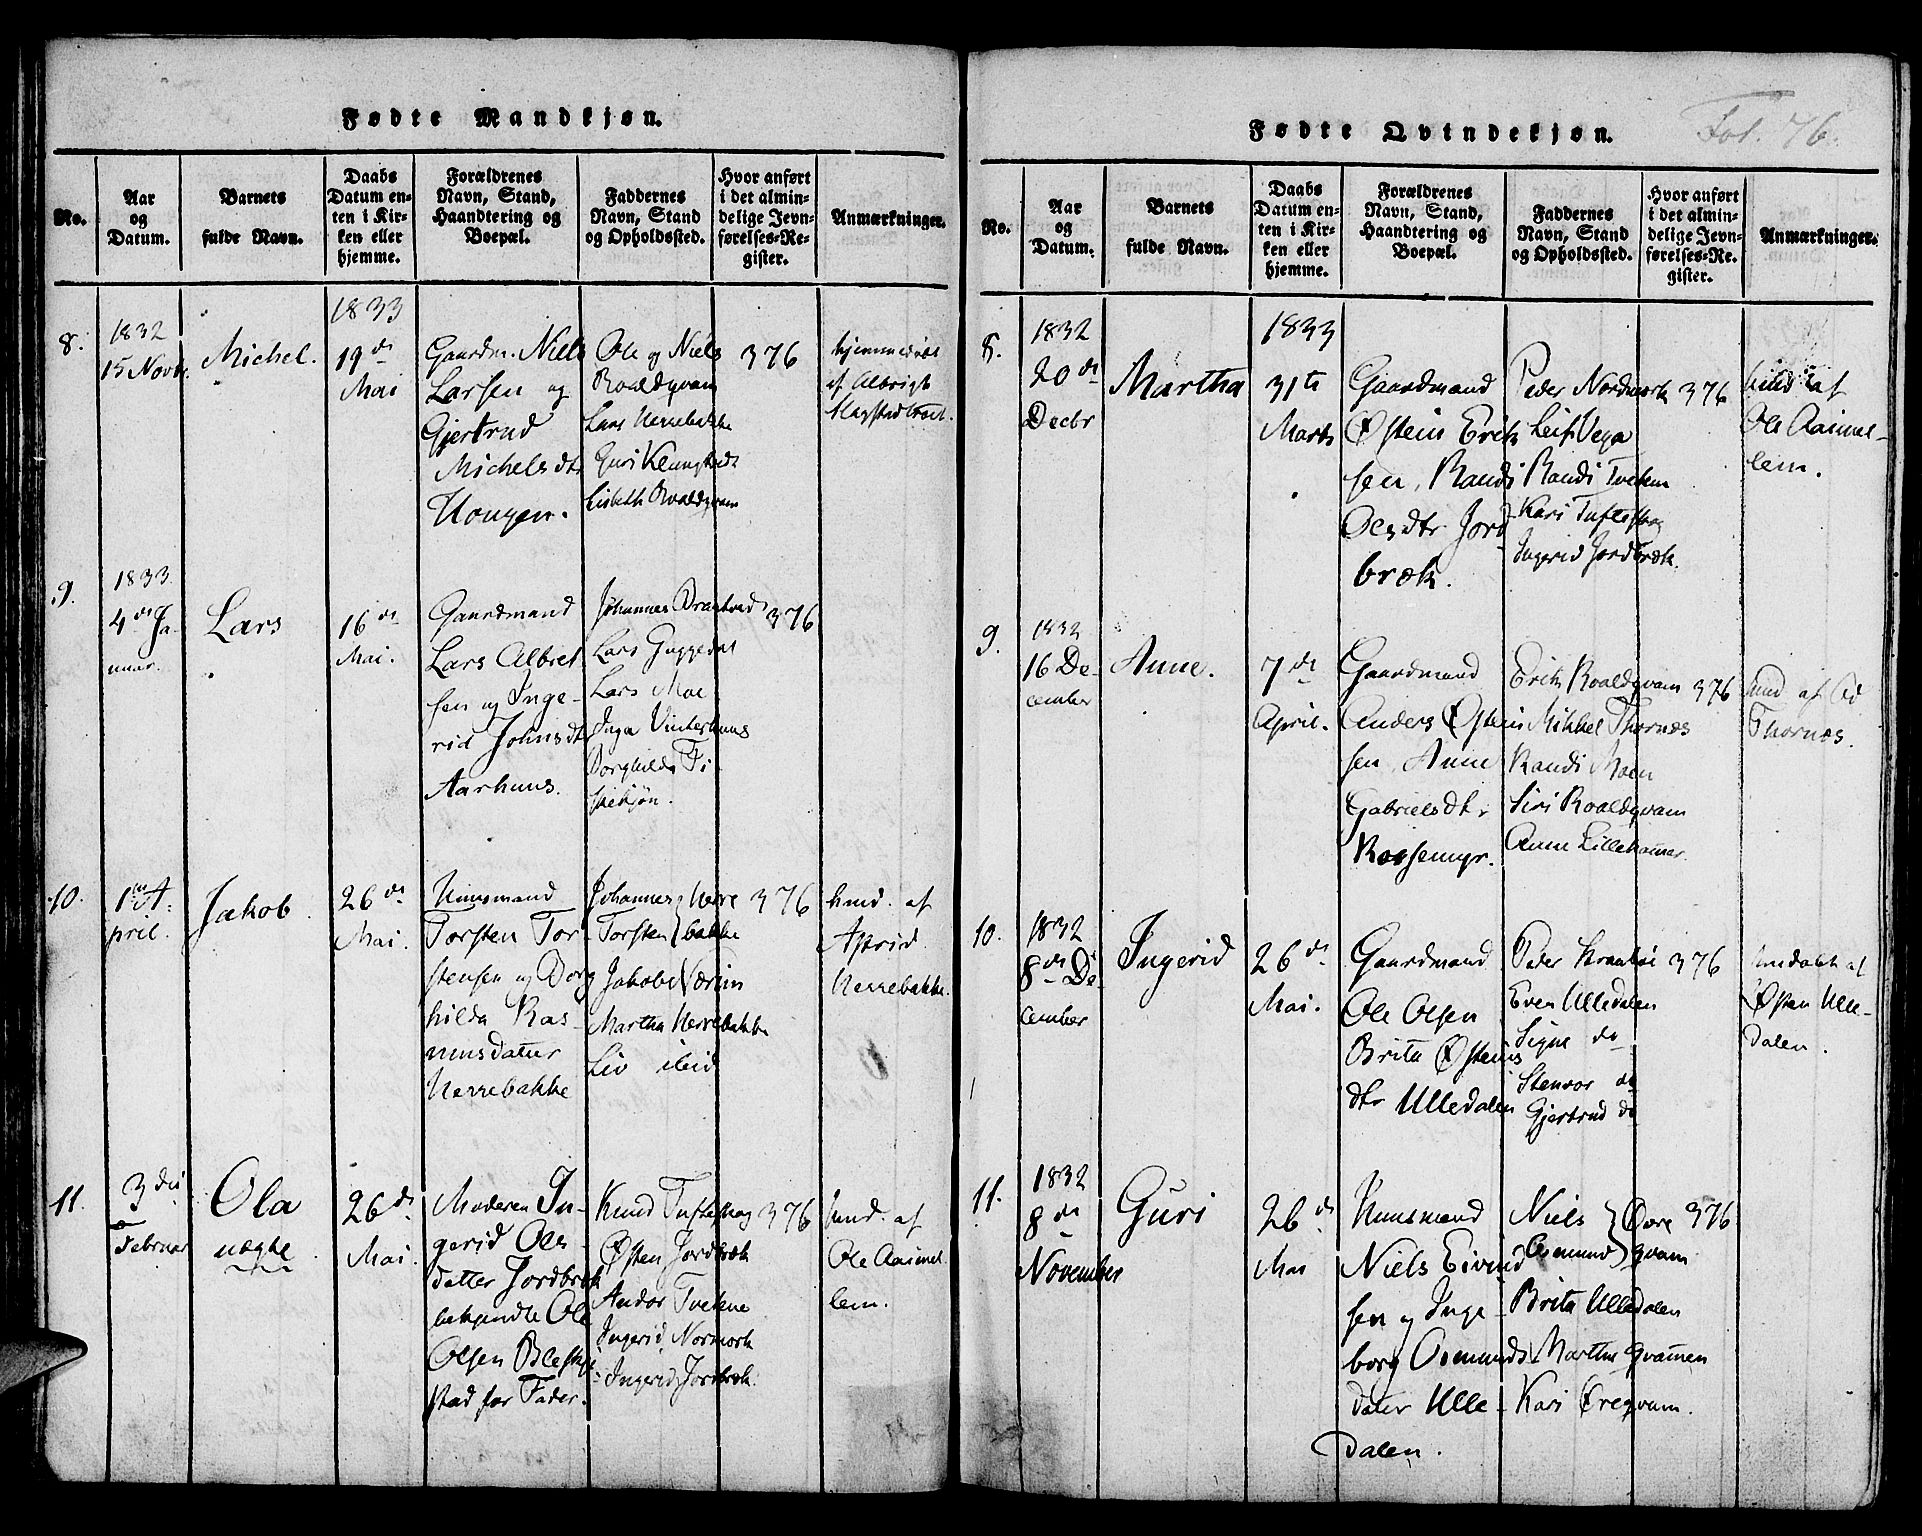 Fødte Mandkjøn.
No.
Aar og Datum.
Barnets fulde Navn.
Daabs Datum enten i Kirken eller hjemme.
Forældrenes Navn, Stand, Haandtering og Boepæl.
Faddernes Navn, Stand og Opholdssted.
Hvor anført i det almindelige Jevnførelses-Register.
Anmærkninger.
8.
1832
15 Novbr
Michel.
1833
19de
Mai
Gaardm. Niels
Larsen og
Gjertrud
Michelsdtr
Hougen.
Ole og Niels
Roaldqvam
Lars Herrebakke
Guri
Lisbeth Roaldqvam
376
hjemmedøbt
af Albrigt
9.
1833.
4de Ja-
nuar.
Lars
16de
Mai.
Gaardmand
Lars Albret
sen og Inge-
rid Johnsdtr
Aarhuus.
Johannes
Lars
Lars Moe
Inga Vinterhuus
Borghilda Fi
skekjøn.
376
10.
1ste A-
pril.
Jakob
26de
Mai.
Huusmand
Torsten Tor-
stensen og Borg
hilda Ras-
musdatter
Herrebakke
Johannes } Herre
Torsten } bakke
Jakobe Værim
Martha Herrebakke
Liv ibid
376
hmd. af
Astrid
Herrebakke.
11.
3die
Februar
Ola
uægte
26de
Mai.
Moderen In-
gerid Ols-
datter Jordbrek
bekjendte Ole
Olsen Bleskje-
stad for Fader.
Knud Tufteskog
Østen Jordbræk
Andor Tvekne
Ingerid Normork
Ingerid Jordbræk.
376
hmd. af
Ole Aarmel
lem.
Fødte Qvindekjøn.
Fol. 76.
No.
Aar og Datum.
Barnets fulde Navn.
Daabs Datum enten i Kirken eller hjemme.
Forældrenes Navn, Stand, Haandtering og Boepæl.
Faddernes Navn, Stand og Opholdssted.
Hvor anført i det almindelige Jevnførelses-Register.
Anmærkninger.
8.
1832
20de
Decbr
Martha
1833
31te
Marts
Gaardmand
Østein Erik
sen, Randi
Olsdtr Jord
bræk.
Peder Nordmork
Leif Vega
Randi Tvekne
Kari Tufteskog
Ingerid Jordbræk.
376
hmd af
Ole Aarmel-
lem.
9.
1832
16 De-
cember
Anne.
7de
April.
Gaardmand
Anders Østein
sen, Anne
Gabrielsdtr
Roaldqvam
Erik Roaldqvam
Mikkel Thornæs
Randi Moen
Siri Roaldqvam
Anne Lillehamar.
376
hmd af
Thornæs.
10.
1832
8de De-
cember
Ingerid
26de
Mai.
Gaardmand
Ole Olsen
Brita Østeins
dtr Ulledalen
Peder
Even Ulledalen
Signe do
Stenvor do
Gjertrud do
376
hmdøbt af
Østen Ulle-
dalen.
11.
1832
8de
November
Guri
26de
Mai
Huusmand
Niels Eivind
sen og Inge-
borg Osmunds
dater Ulle-
dalen.
Niels } Øvre
Osmund } qvam
Brita Ulledalen
Martha Qvamen
Kari Øregvam.
376